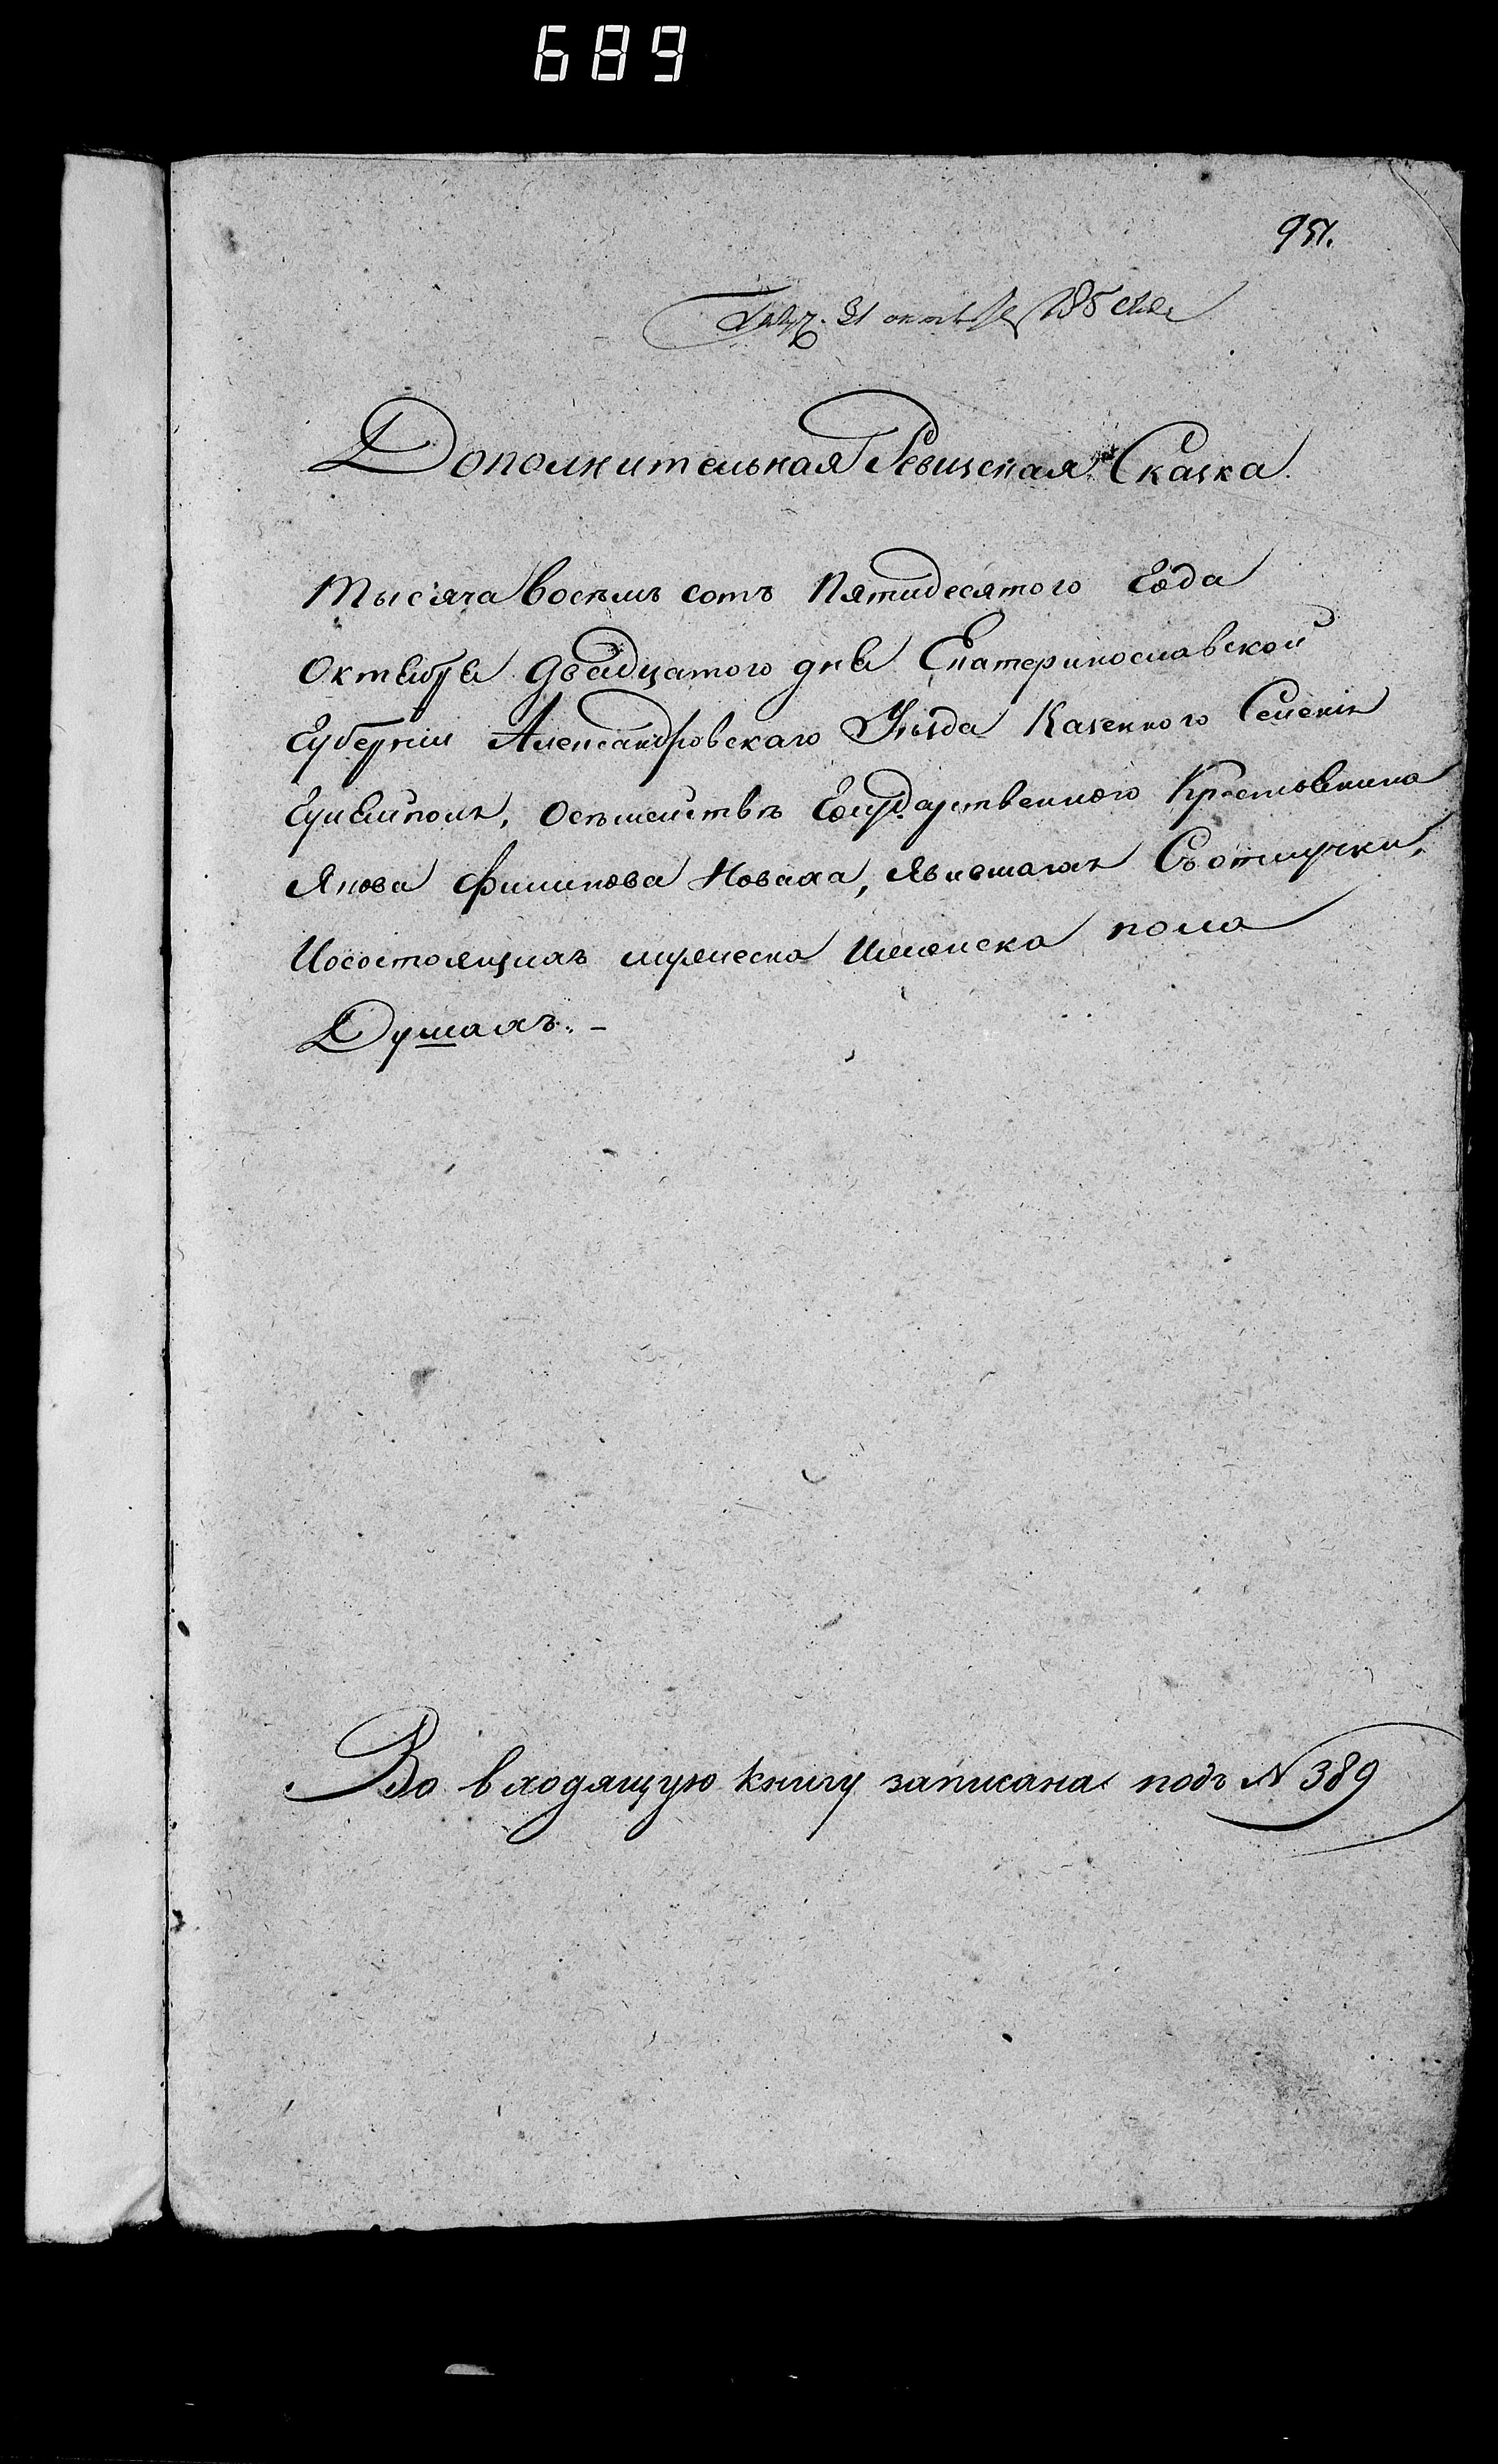 689
951.
Получ. 31 октября 185 года
Дополнительная Ревизская Сказка
Тысяча восемь сотъ Пятидесятого Года
Октября двадцатого дня Екатеринославской
Губерніи Александровскаго Уѣзда Казенного Селенія
Гуляйполя, Осѣмействѣ Государственного Крестьянина
Якова Филипова Новаха, явившагося Съотлучки,
Исостоящихъ мужеска Иженска пола
Душахъ. –
Во входящую книгу записана подъ N 389